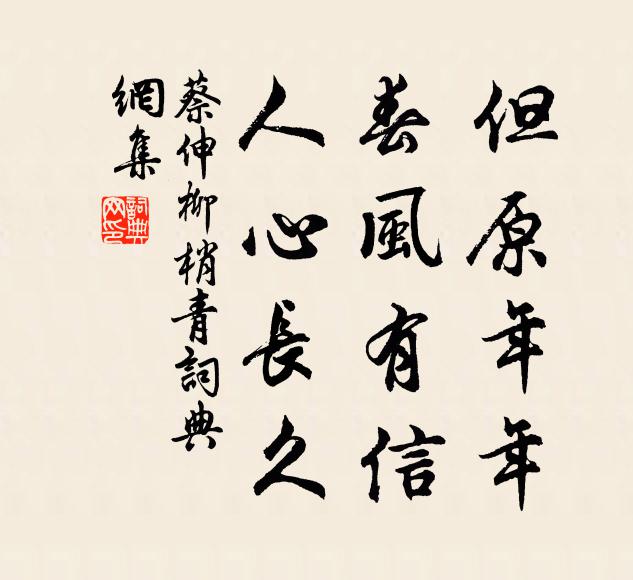 但原年年
春風有信
人心長久
蔡伸柳梢青詞典
網集
詞典
网印